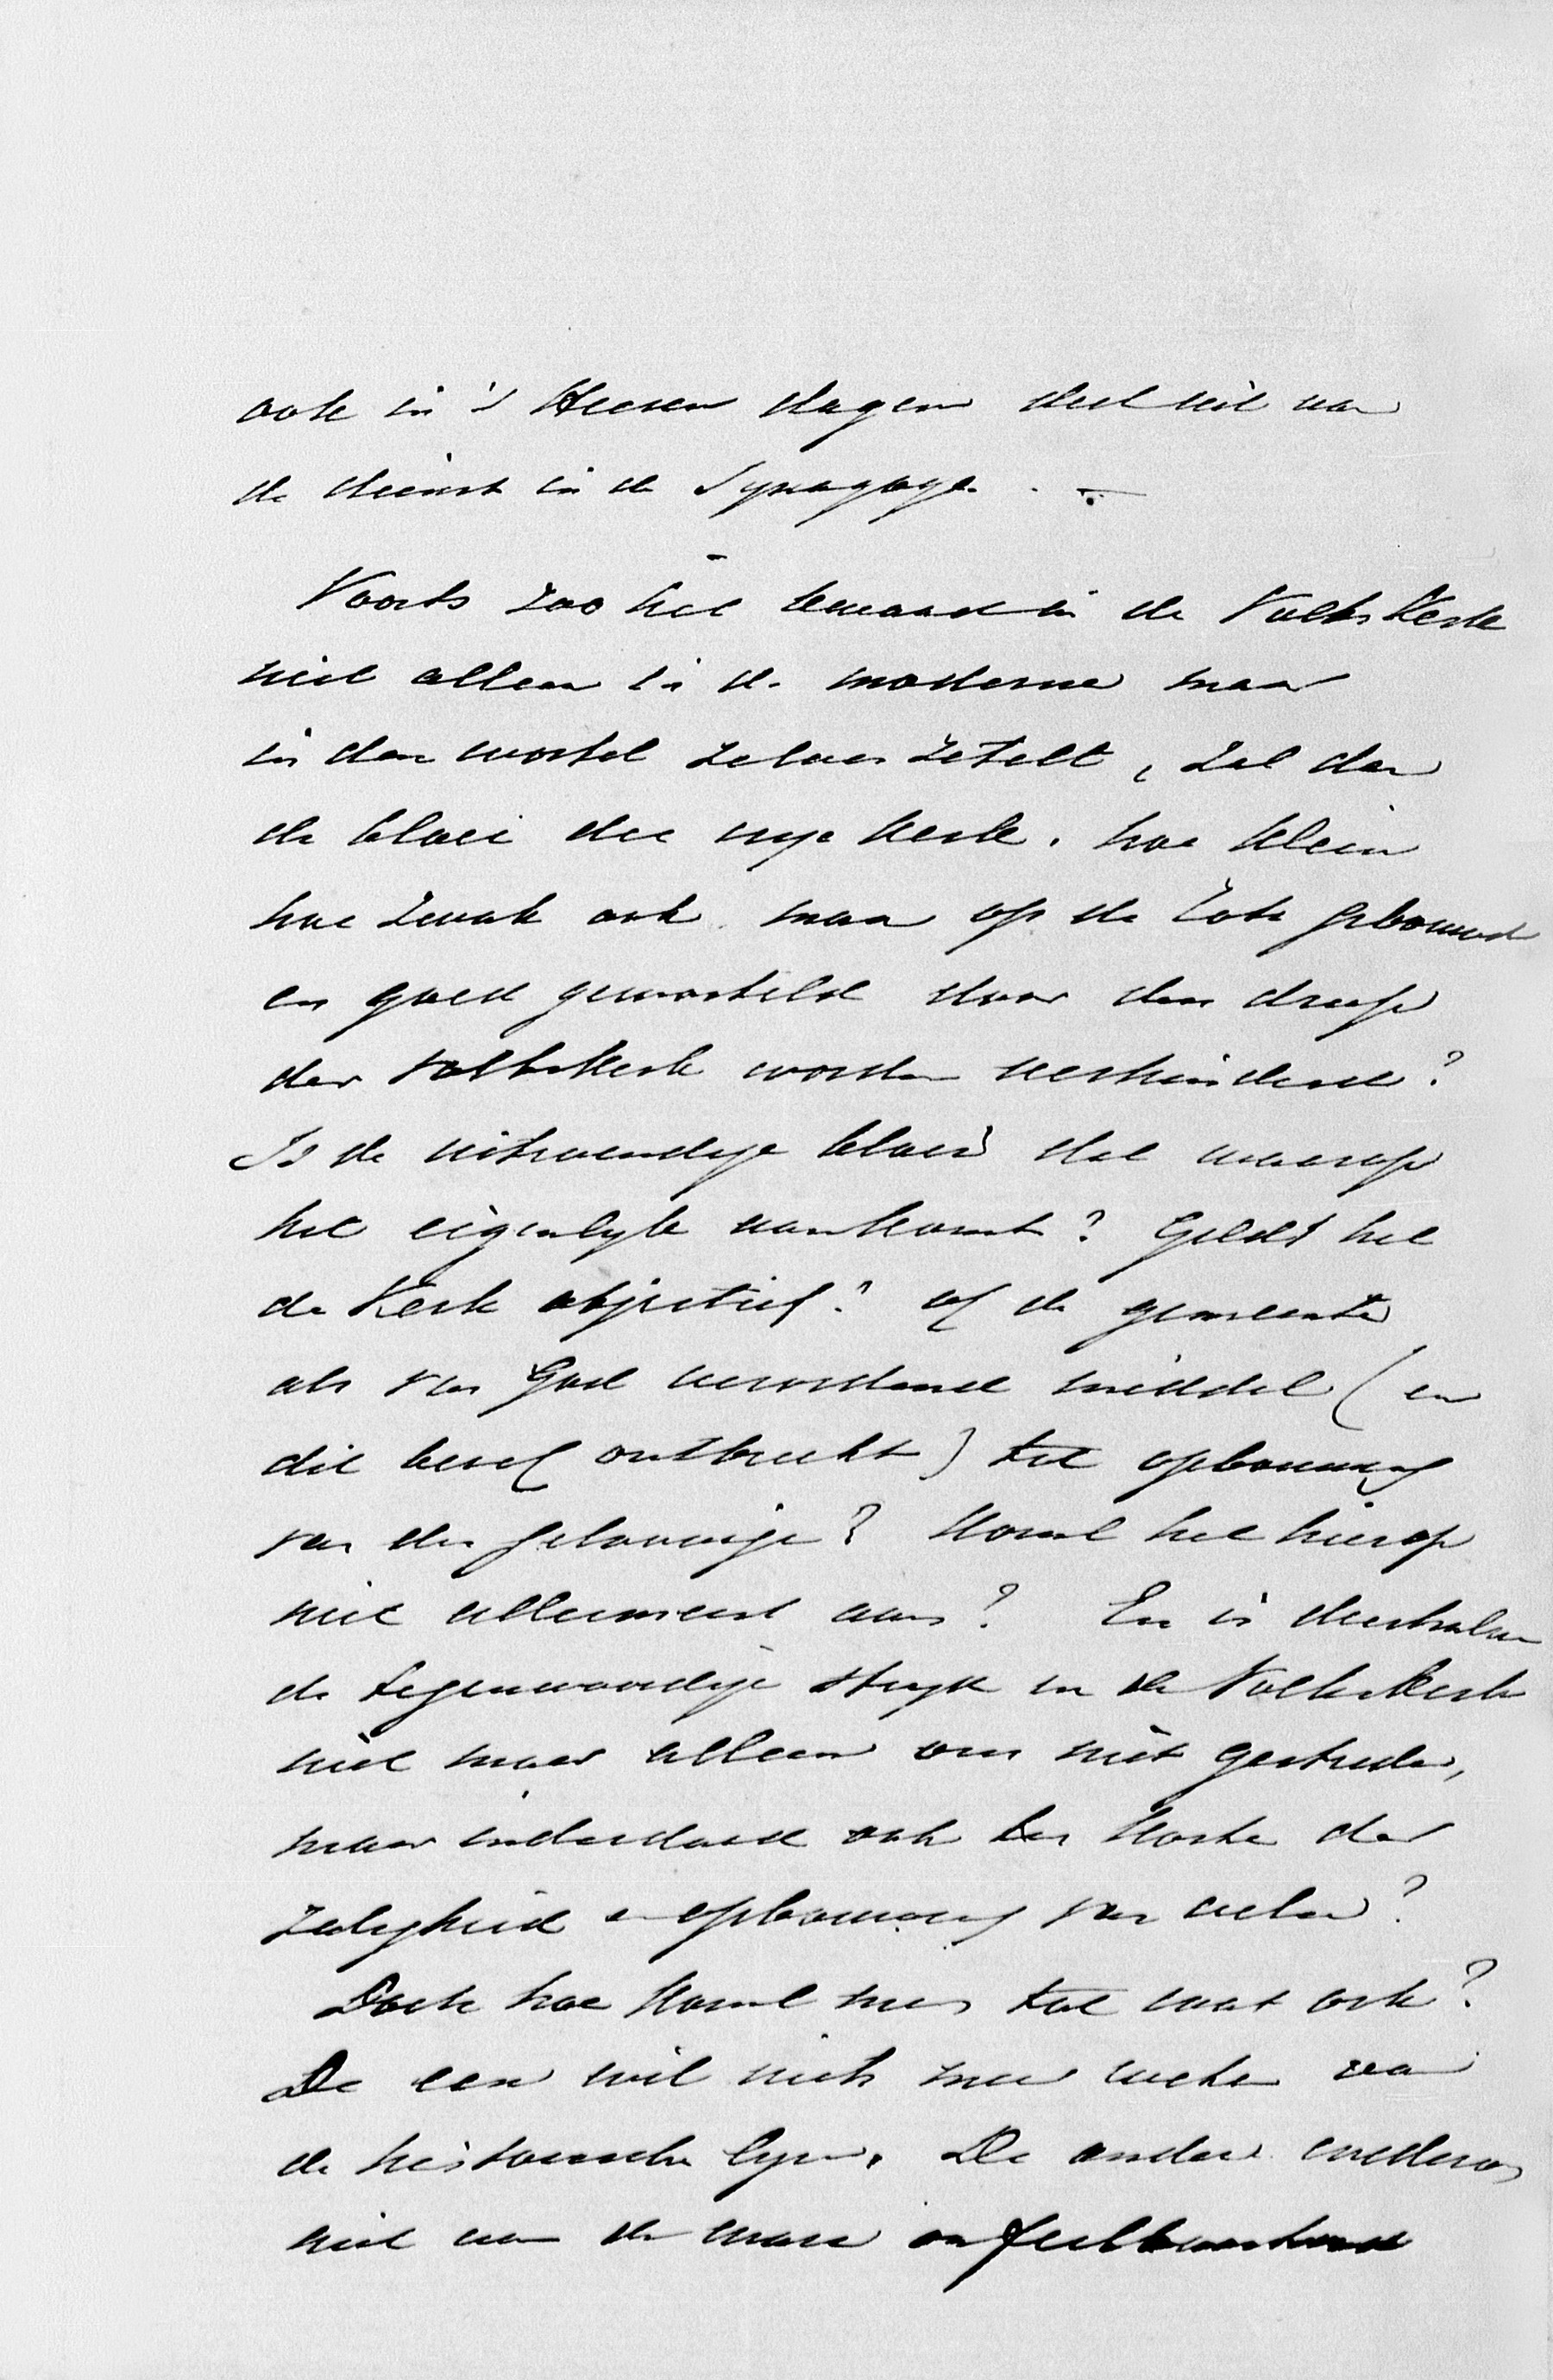 ook in 's Heeren dagen deel uit van
de dienst in de Synagoge. . —
Voorts zoo het kwaad in de Volkskerk
niet alleen in de moderne maar
in den wortel zelven zetelt, zal dan
de bloei der vrije kerk. hoe klein
hoe zwak ook maar op de rots gebouwd
en goed geworteld door den drup
der volkskerk worden verhinderd?
Is de uitwendige bloei dat waarop
het eigenlyk aankomt? Geldt het
de Kerk objectief? of de gemeente
als van God verordend middel (en
dit besef ontbreekt) tot opbouwing
van den geloovige? Komt het hierop
niet allermeest aan? En is derhalve
de tegenwoordige stryd in de Volkskerk
niet maar alleen om niet gestreden,
maar inderdaad ook ten koste der
zaligheid en opbouwing van velen?
Doch hoe komt men tot wat ook?
De een wil niets meer weten van
de historische lyn. De ander
niet aan de ware onfeilbaarheid